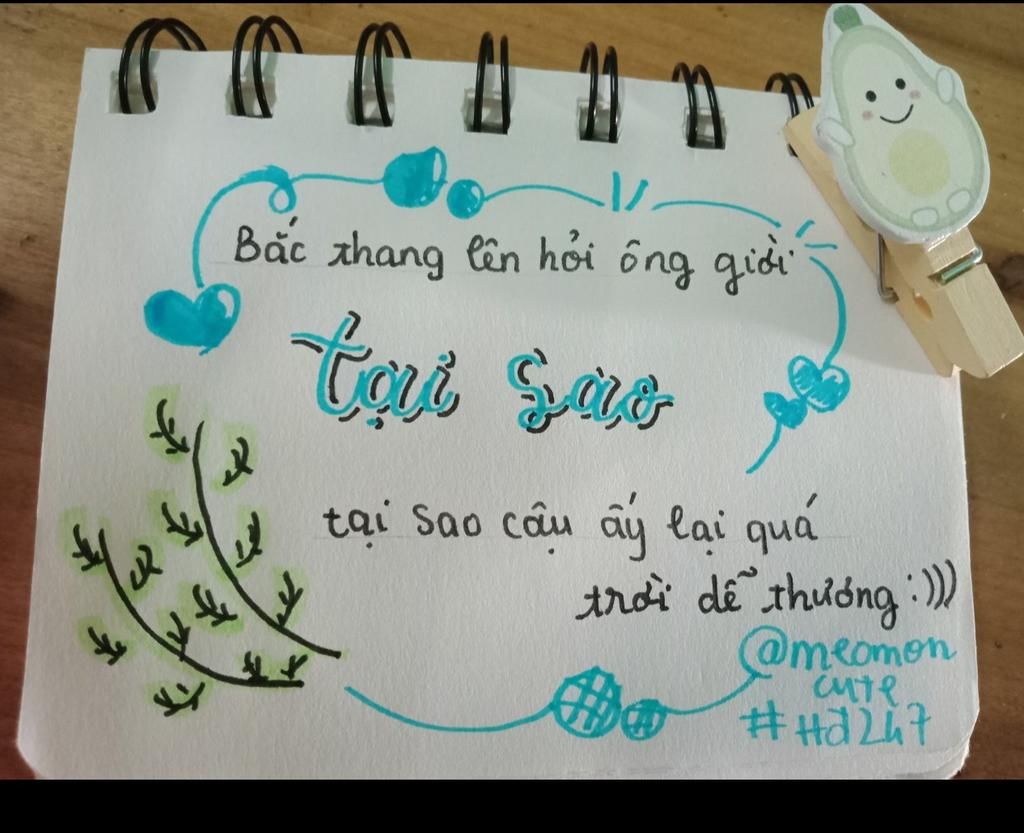 Bắc thang lên hỏi ông giời
tại sao
tại sao cậu ấy lại quá
trời dễ thương :)))
@meomon
cute
#Hđ247